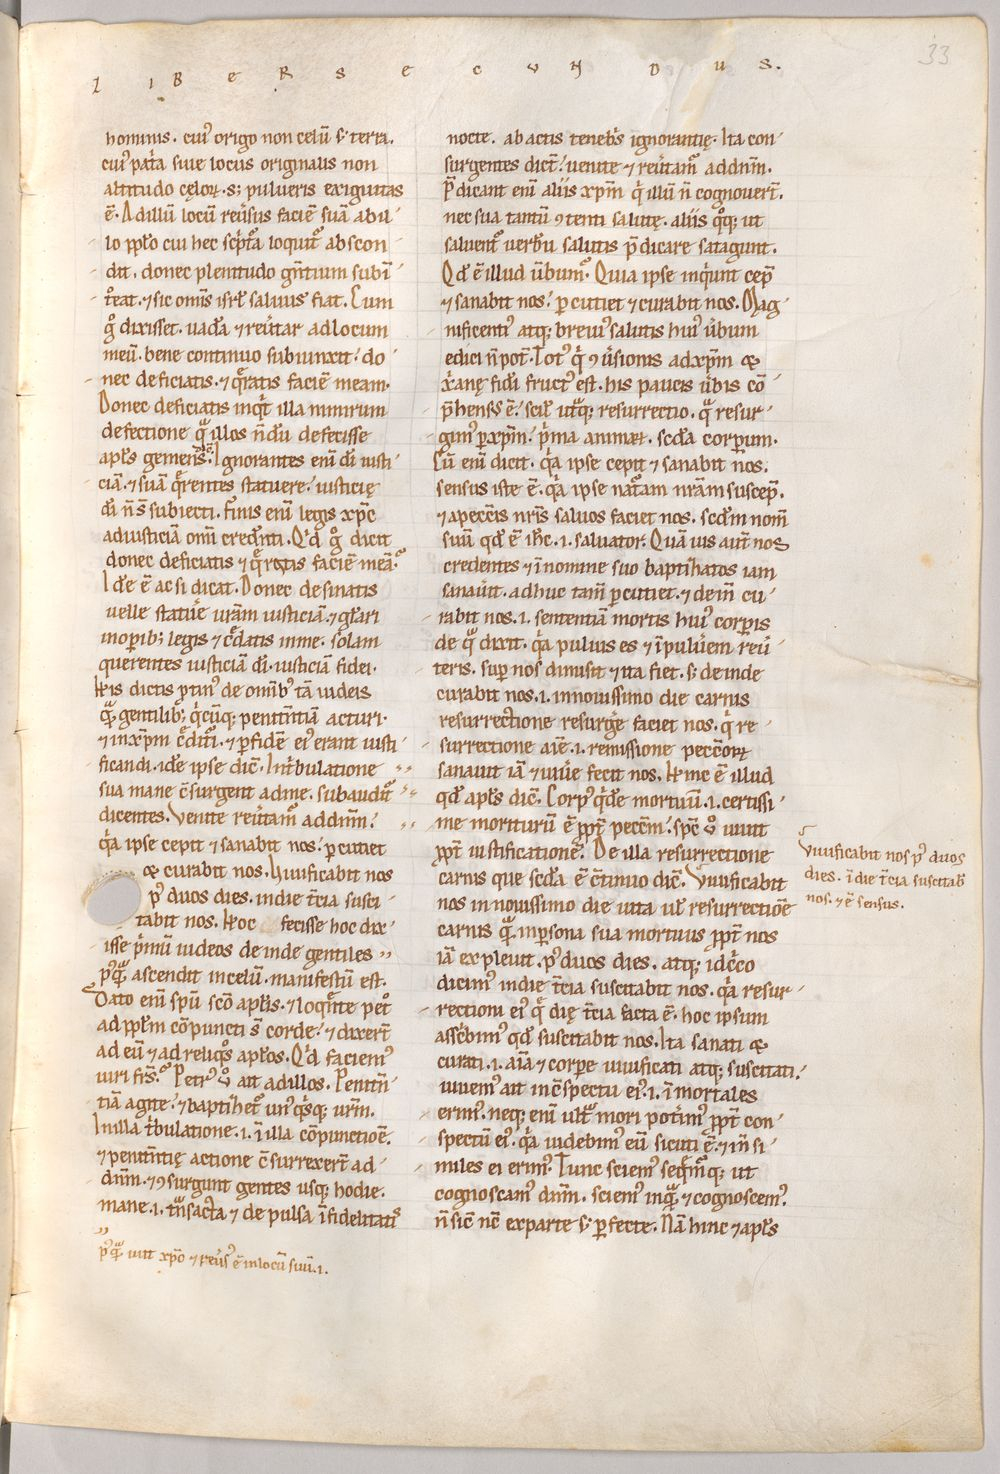 LIBER SECUNDUS.
33
hominis. cuiꝰ origo non celū s; terra.
cuiꝰ pat͛a siue locus originalis non
altitudo cęloꝝ. s; pulueris exiguitas
ē. Ad illū locū reūsus faciē suā ab il
lo pp̄lo cui hec sc͛pta loquit᷑ abscon
dit. donec plenitudo gn̄tium subī
t͛eat. ⁊ sic omīs isrł saluus fiat. Cum
g̊ dixisset. uada ⁊ reūtar ad locum
meū. bene continuo subiunxit. do
nec deficiatis. ⁊ q̄ratis faciē meam.
Donec deficiatis inq͛t illa nimirum
defectione qͣ illos n̄dū defecisse
apłs gemens. Ignorantes enī dī iusti
ciā. ⁊ suā q̄rentes statuere. iusticię
dī n̄ s̄ subiecti. Finis enī legis xp̄c
ad iusticiā omī cred̄nti. Qͥd g̊ dicit
donec deficiatis ⁊ q̄ratis faciē meā.
Id̄e ē ac si dicat. Donec desinatis
uelle statūe ur̄am iusticiā. ⁊ glari
in opib; legis ⁊ c͛datis in me. solam
querentes iusticiā dī. iusticiā fidei.
His dictis ptinꝰ de omībꝰ tā iudeis
qͣ gentilib; qͥcūq; penitn̄tiā acturi.
⁊ in xp̄m c͛dit͛i. ⁊ p fidē eiꝰ erant iusti
ficandi. id̄e ipse dic̄. In t͛bulatione
sua mane c̄surgent ad me. subaudit᷑
dicentes. Venite reūtam᷑ ad dn̄m.
qͥa ipse cepit ⁊ sanabit nos. percutiet
& curabit nos. Uiuificabit nos
pꝰ duos dies. in die t͛cia susci
tabit nos. Hoc fecisse hoc dix
isse p͛mū iudeos deinde gentiles
pꝰqͣ ascendit in celū. manifestū est.
Dato enī spū sc̄o apłis. ⁊ loqn̄te pet͛o
ad pp̄łm cōpuncti s̄ corde. ⁊ dixert̄
ad eū ⁊ ad reliqͦs apłos. Qͥd faciemꝰ
uiri frs̄. Petrꝰ ů ait ad illos. Penitn̄
tiā agite. ⁊ baptihet᷑ unꝰqͥsq; ur̄m.
In illa t͛bulatione .i. ī illa cōpunctiōe.
⁊ penitn̄tię actione c̄surrexert̄ ad
dn̄m. ⁊ ꝯsurgunt gentes usq; hodie.
mane .i. tͣnsacta ⁊ depulsa īfidelitatis
pꝰqͣ iuit xp̄o ⁊ reūsꝰ ē in locū suū .i.
nocte. ab actis teneb͛s ignorantię. Ita con
surgentes dict̄. uenite ⁊ reūtam᷑ ad dn̄m.
P̄dicant enī aliis xp̄m qͥ illū n̄ cognouert̄.
nec sua tantū ꝯtenti salute. aliis qͦq; ut
saluent᷑ uerbū salutis p̄dicare satagunt.
Qd̄ ē illud ūbum. Quia ipse inqͥunt cep̄
⁊ sanabit nos. percutiet ⁊ curabit nos. Mag
nificentiꝰ atq; breuiꝰ salutis huiꝰ ūbum
edici n̄ pot̄. Totꝰ qͥ ꝯūsionis ad xp̄m &
xͥanę fidī fructꝰ est. his paucis ūbis cō
p̄hensꝰ ē. scił ut͛q; resurrectio. qͣ resur
gimꝰ p xp̄m. p͛ma animaꝝ. scd̄a corpium.
Cū enī dicit. qͥa ipse cepit ⁊ sanabit nos.
sensus iste ē. qͥa ipse nat͛am nr̄am suscep̄.
⁊ a pecc̄is nr̄is saluos faciet nos. scd̄m nom̄
suū qd̄ ē ih̄c .i. saluator. Quā uis aut̄ nos
credentes ⁊ ī nomine suo baptihatos iam
sanauit. adhuc tam̄ percutiet. ⁊ dein̄ cu
rabit nos .i. sententiā mortis huiꝰ corpis
de qͣ dixit. qͥa puluis es ⁊ ī puluem reū
teris. sup nos dimisit ⁊ ita fiet. s; deinde
curabit nos .i. in nouissimo die carnis
resurrectione resurge faciet nos. qͥ re
surrectione aīe .i. remissione pecc̄oꝝ
sanauit iā ⁊ uiuē fecit nos. Hinc ē illud
qd̄ apłs dic̄. Corpꝰ qͥde mortuū .i. certissi
me moriturū ē ppt̄ pecc̄m. spc̄ ů uiuit
ppt̄ iustificationē. De illa resurrectione
carnis que scd̄a ē c̄tinuo dic̄. Viuificabit
nos in nouissimo die uita uł resurrectiōe
carnis qͣ in persona sua mortuus ppt̄ nos
iā expleuit. pꝰ duos dies. atq; idc͛co
dicimꝰ in die t͛cia suscitabit nos. qͥa resur
rectioni eiꝰ qͤ die t͛cia facta ē. hoc ipsum
ass͛bimꝰ qd̄ suscitabit nos. Ita sanati &
curati .i. aīa ⁊ corpe uiuificati atq; suscitati.
uiuemꝰ ait in c̄spectu eiꝰ .i. īmortales
erimꝰ. neq; enī ultͣ mori potimꝰ ppt̄ con
spectū eiꝰ. qͥa uidebimꝰ eū sicuti ē. ⁊ in̄ si
miles ei erimꝰ. Tunc sciemꝰ seqͣmꝰq; ut
cognoscamꝰ dn̄m. sciemꝰ inqͣ ⁊ cognoscemꝰ.
n̄ sic̄ nc̄ ex parte s; perfecte. Nā hinc ⁊ apłs
Viuificabit nos pꝰ duos
dies. ī die t͛cia suscitab̄
nos. ⁊ ē sensus.